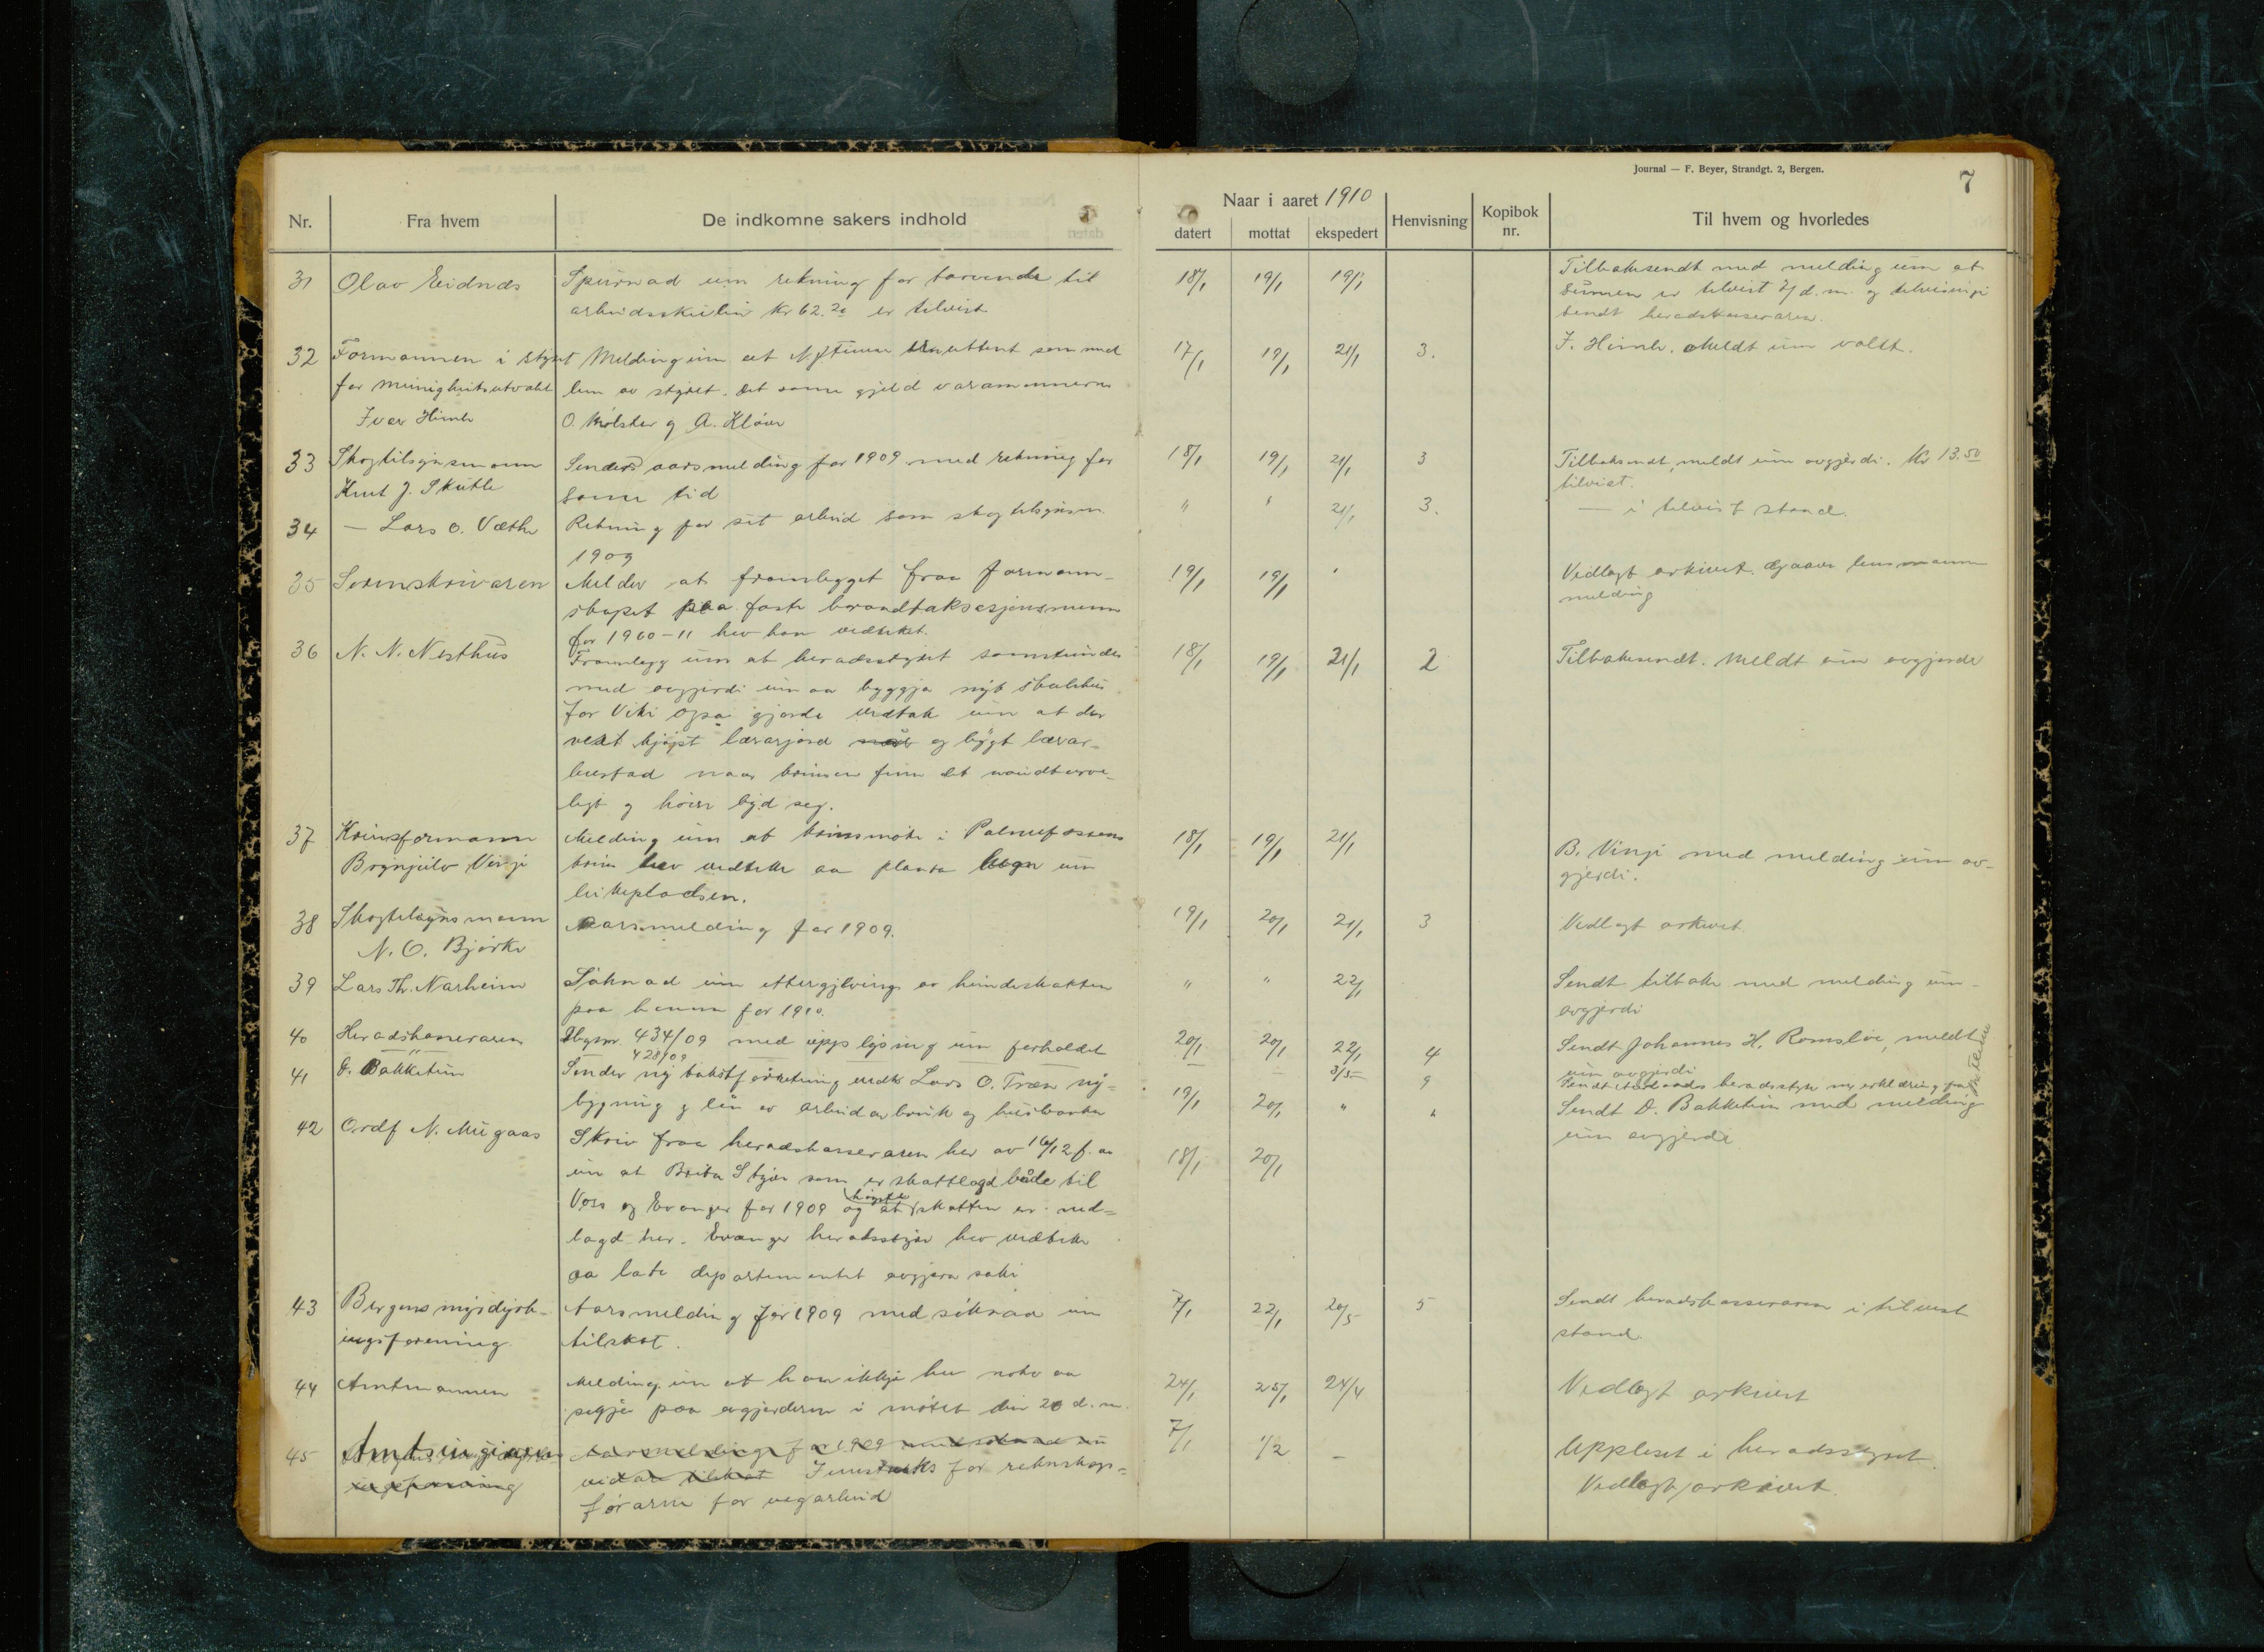 Journal — F. Beyer, Strandgt. 2, Bergen.
7
Nr.
Fra hvem
De indkomne sakers indhold
Naar i aaret 1910
datert
mottat
ekspedert
Henvisning
Kopibok nr.
Til hvem og hvorledes
31 Olav Eidnæs Spurnad um rekning for tarvende til 18/1 19/1 19/1 Tilbakesendt med melding um at
arbeidsskulin Kr 62.20 er tilvist sumen er tilvist d. m. og tilvisingi
sendt heradskasseraren.
32 Formannen i styret Melding um at som med 17/1 19/1 21/1 3. I. Himle. Meldt um valet.
for lem av styret. Det same gjeld varamennerne
Iver Himle O. Mølster og A. Kløve
33 Skogtilsynsmann Sender aarsmelding for 1909 med rekning for 18/1 19/1 21/1 3 Tilbakesendt, meldt um avgjerdi. Kr 13.50
Knut J. Skutle same tid tilvist.
34 — Lars O. Væthe Rekning for sit arbeid som skogtilsynsm. " " 21/1 3. — i tilvist stand.
1909
35 Sorenskrivaren Melder at framlegget fraa formann- 19/1 19/1 ' Vedlagt arkivet. lensmannen
skapet paa faste brandtakssjonsmenn melding
for 1910-11 hev han vedteket.
36 N. N. Nesthus Framlegg um at heradsstyret samstundes 18/1 19/1 21/1 2 Tilbakesendt. Meldt um avgjerde
med avgjerdi um aa byggja nytt skulehus
for Viki ogsa gjerde vedtak um at der
vert kjøpt lærarjord og bygt lærar-
bustad naar krinsen finn det naudturve-
legt og høve byd seg.
37 Krinsformann Melding um at krinsmøte i Palmefossens 18/1 19/1 21/1 B. Vinje med melding um av-
Brynjulv Vinje krins hev vedteke aa planta hegn um gjerdi.
leikepladsen.
38 Skogtilsynsmann Aarsmelding for 1909. 19/1 20/1 21/1 3 Vedlagt arkivet.
N. O. Bjørke
39 Lars Th. Narheim Søknad um ettergjeving av hundeskatten " " 22/1 Sendt tilbake med melding um
paa honom for 1910. avgjerdi
40 Heradskasseraren 434/09 med upplysing um forholdet 20/1 20/1 22/1 4 Sendt Johannes H. Romsløe, meldt
um avgjerdi
— " — 428/09 — — — — — 3/5 9 Sendt heradsstyre ny erklæring fra
41 D. Bakketun Sender ny takstforretning vedk Lars O. Træn ny- 19/1 20/1 " " Sendt D. Bakketun med melding
bygning og lån av arbeidarbruk og husbanken um avgjerdi
42 Ordf N. Mugaas Skriv fraa heradskasseraren her av 16/12 f. aa 18/1 20/1
um at Brita Stgjær som er skattlagd både til
Voss og Evanger for 1909 og at høgste skatten er ned-
lagd her. Evanger heradsstyre hev vedteke
aa late departementet avgjera saki
43 Bergens myrdyrk- Aarsmelding for 1909 med søknad um 7/1 22/1 20/5 5 Sendt heradskasseraren i tilvist
ingsforening tilskot. stand.
44 Amtmannen Melding um at han ikkje hev noko aa 24/1 25/1 24/4 Vedlagt arkivet
segja paa avgjerderne i møtet den 20 d. m.
45 Amtsingeniøren Aarsmelding for 1909 med søknad um 7/1 1/2 — Upplest i heradsstyret.
ingsforening vidare tilskot Instruks for rekneskaps- Vedlagt arkivet.
førarne for vegarbeid